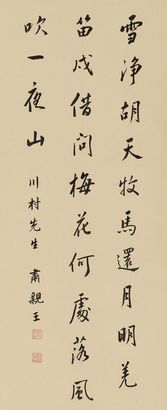 雪净胡天牧馬還月明羌
笛戍借問梅花何處落風
吹一夜山
川村先生 肅親王